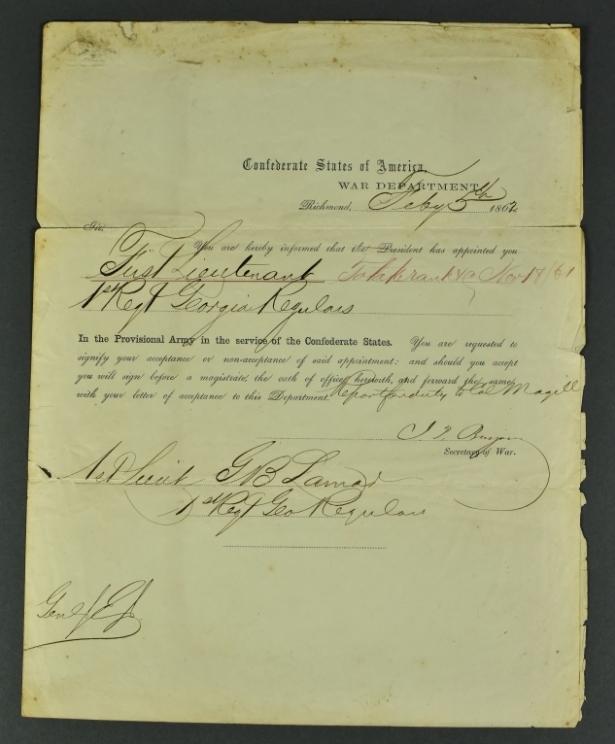 Confederate States of America,
WAR DEPARTMENT,
Richmond, Feby 5th 1862
Sir:
You are hereby informed that the President has appointed you
First Lieutenant To take rank Nov 19/61
1st Regt Georgia Regulars
In the Provisional Army in the service of the Confederate States. You are requested to
signify your acceptance or non-acceptance of said appointment: and should you accept
you will sign before a magistrate, the oath of office, herewith, and forward the same,
with your letter of acceptance to this Department. Report for duty to Col Magill
Secretary of War.
1st Lieut G B Lamar
1st Regt Geo Regulars